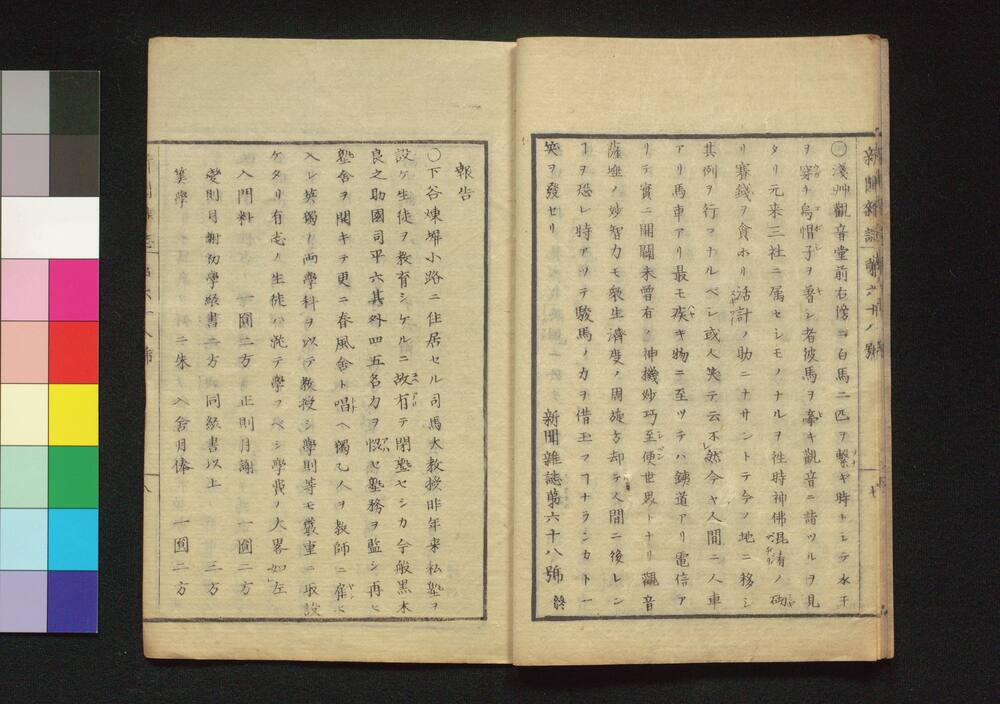 新聞雜誌第六十八號
七
○淺艸觀音堂前右傍ニ白馬二匹ヲ繫キ時トシテ水干
ヲ穿チ烏帽子ヲ着シ者彼馬ヲ牽キ觀音ニ詣ツルヲ見
タリ元来三社ニ属セシモノナルヲ往時神佛混淆ノ砌
リ賽錢ヲ貪ホリ活計ノ助ニナサントテ今ノ地ニ移シ
其例ヲ行フナルベシ或人笑テ云不然今ヤ人間ニ人車
アリ馬車アリ最モ疾キ物ニ至ツテハ鉄道アリ電信ア
リテ實ニ開闢未曾有ノ神機妙巧至便世界トナリ觀音
薩埵ノ妙智力モ衆生濟度ノ周旋方却テ人間ニ後レン
ヿヲ恐レ時アツテ駿馬ノ力ヲ借玉フヿナランカト一
笑ヲ發セリ
新聞雜誌第六十八號 終
報告
○下谷煉塀小路ニ住居セル司馬大教授昨年来私塾ヲ
設ケ生徒ヲ教育シケルニ故有テ閉塾セシカ今般黒木
良之助國司平六其外四五名力ヲ戮セ塾務ヲ監シ再ヒ
塾舎ヲ開キテ更ニ春風舎ト唱ヘ獨乙人ヲ教師ニ雇ヒ
入レ英獨ノ両學科ヲ以テ教授シ學則等モ嚴重ニ取設
ケタリ有志ノ生徒ハ就テ學フベシ學費ノ大畧如左
入門料 一圓二方 正則月謝 一圓二方
變則月謝初學級書二方 同級書以上 三方
筭學 二朱 入舎月俸 一圓二方
八